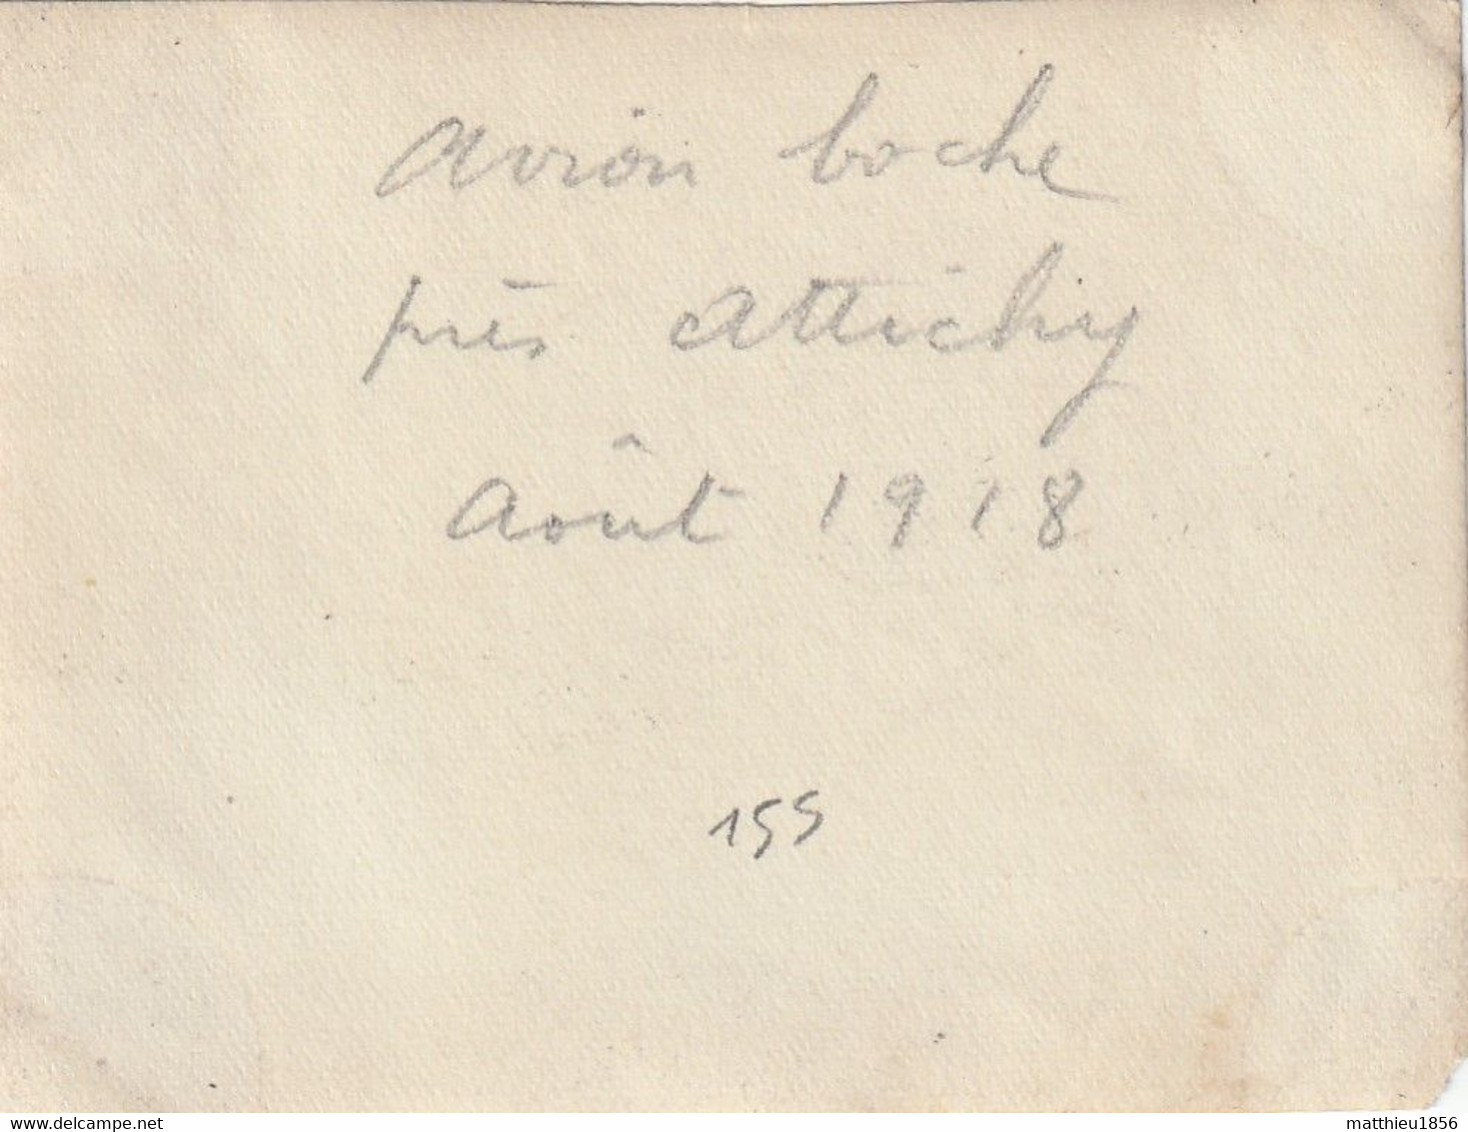 avion boche
près attichy
août 1918
155
delcampe.net
matthieu1856